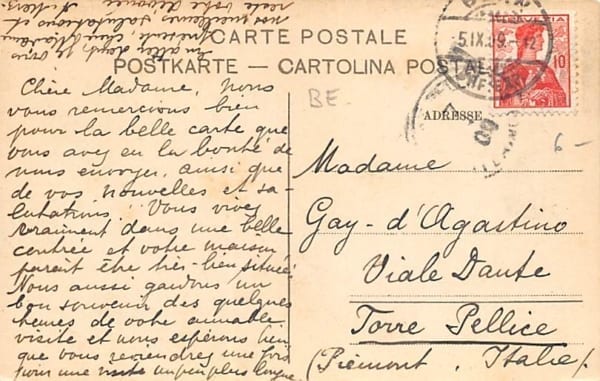 CARTE POSTALE
POSTKARTE — CARTOLINA POSTALE
HELVETIA
10
5.IX.09.-12
09
BE
ADRESSE
6-
Chère Madame, Nous
vous remercions bien
pour la belle carte que
vous avez eu la bonté de
nous envoyer, ainsi que
de vos nouvelles et sa-
lutations! Vous vivez
vraiment dans une belle
contrée et votre maison
parait être très-bien située!
Nous aussi gardons un
bon souvenir des quelques
heures de votre aimable
visite et nous espérons bien
que vous reviendrez une fois
pour une visite un peu plus longue.
nos meilleures salutations et
reste votre
Madame
Gay-d'Agostino
Viale Dante
Torre Pellice
(Piémont, Italie)